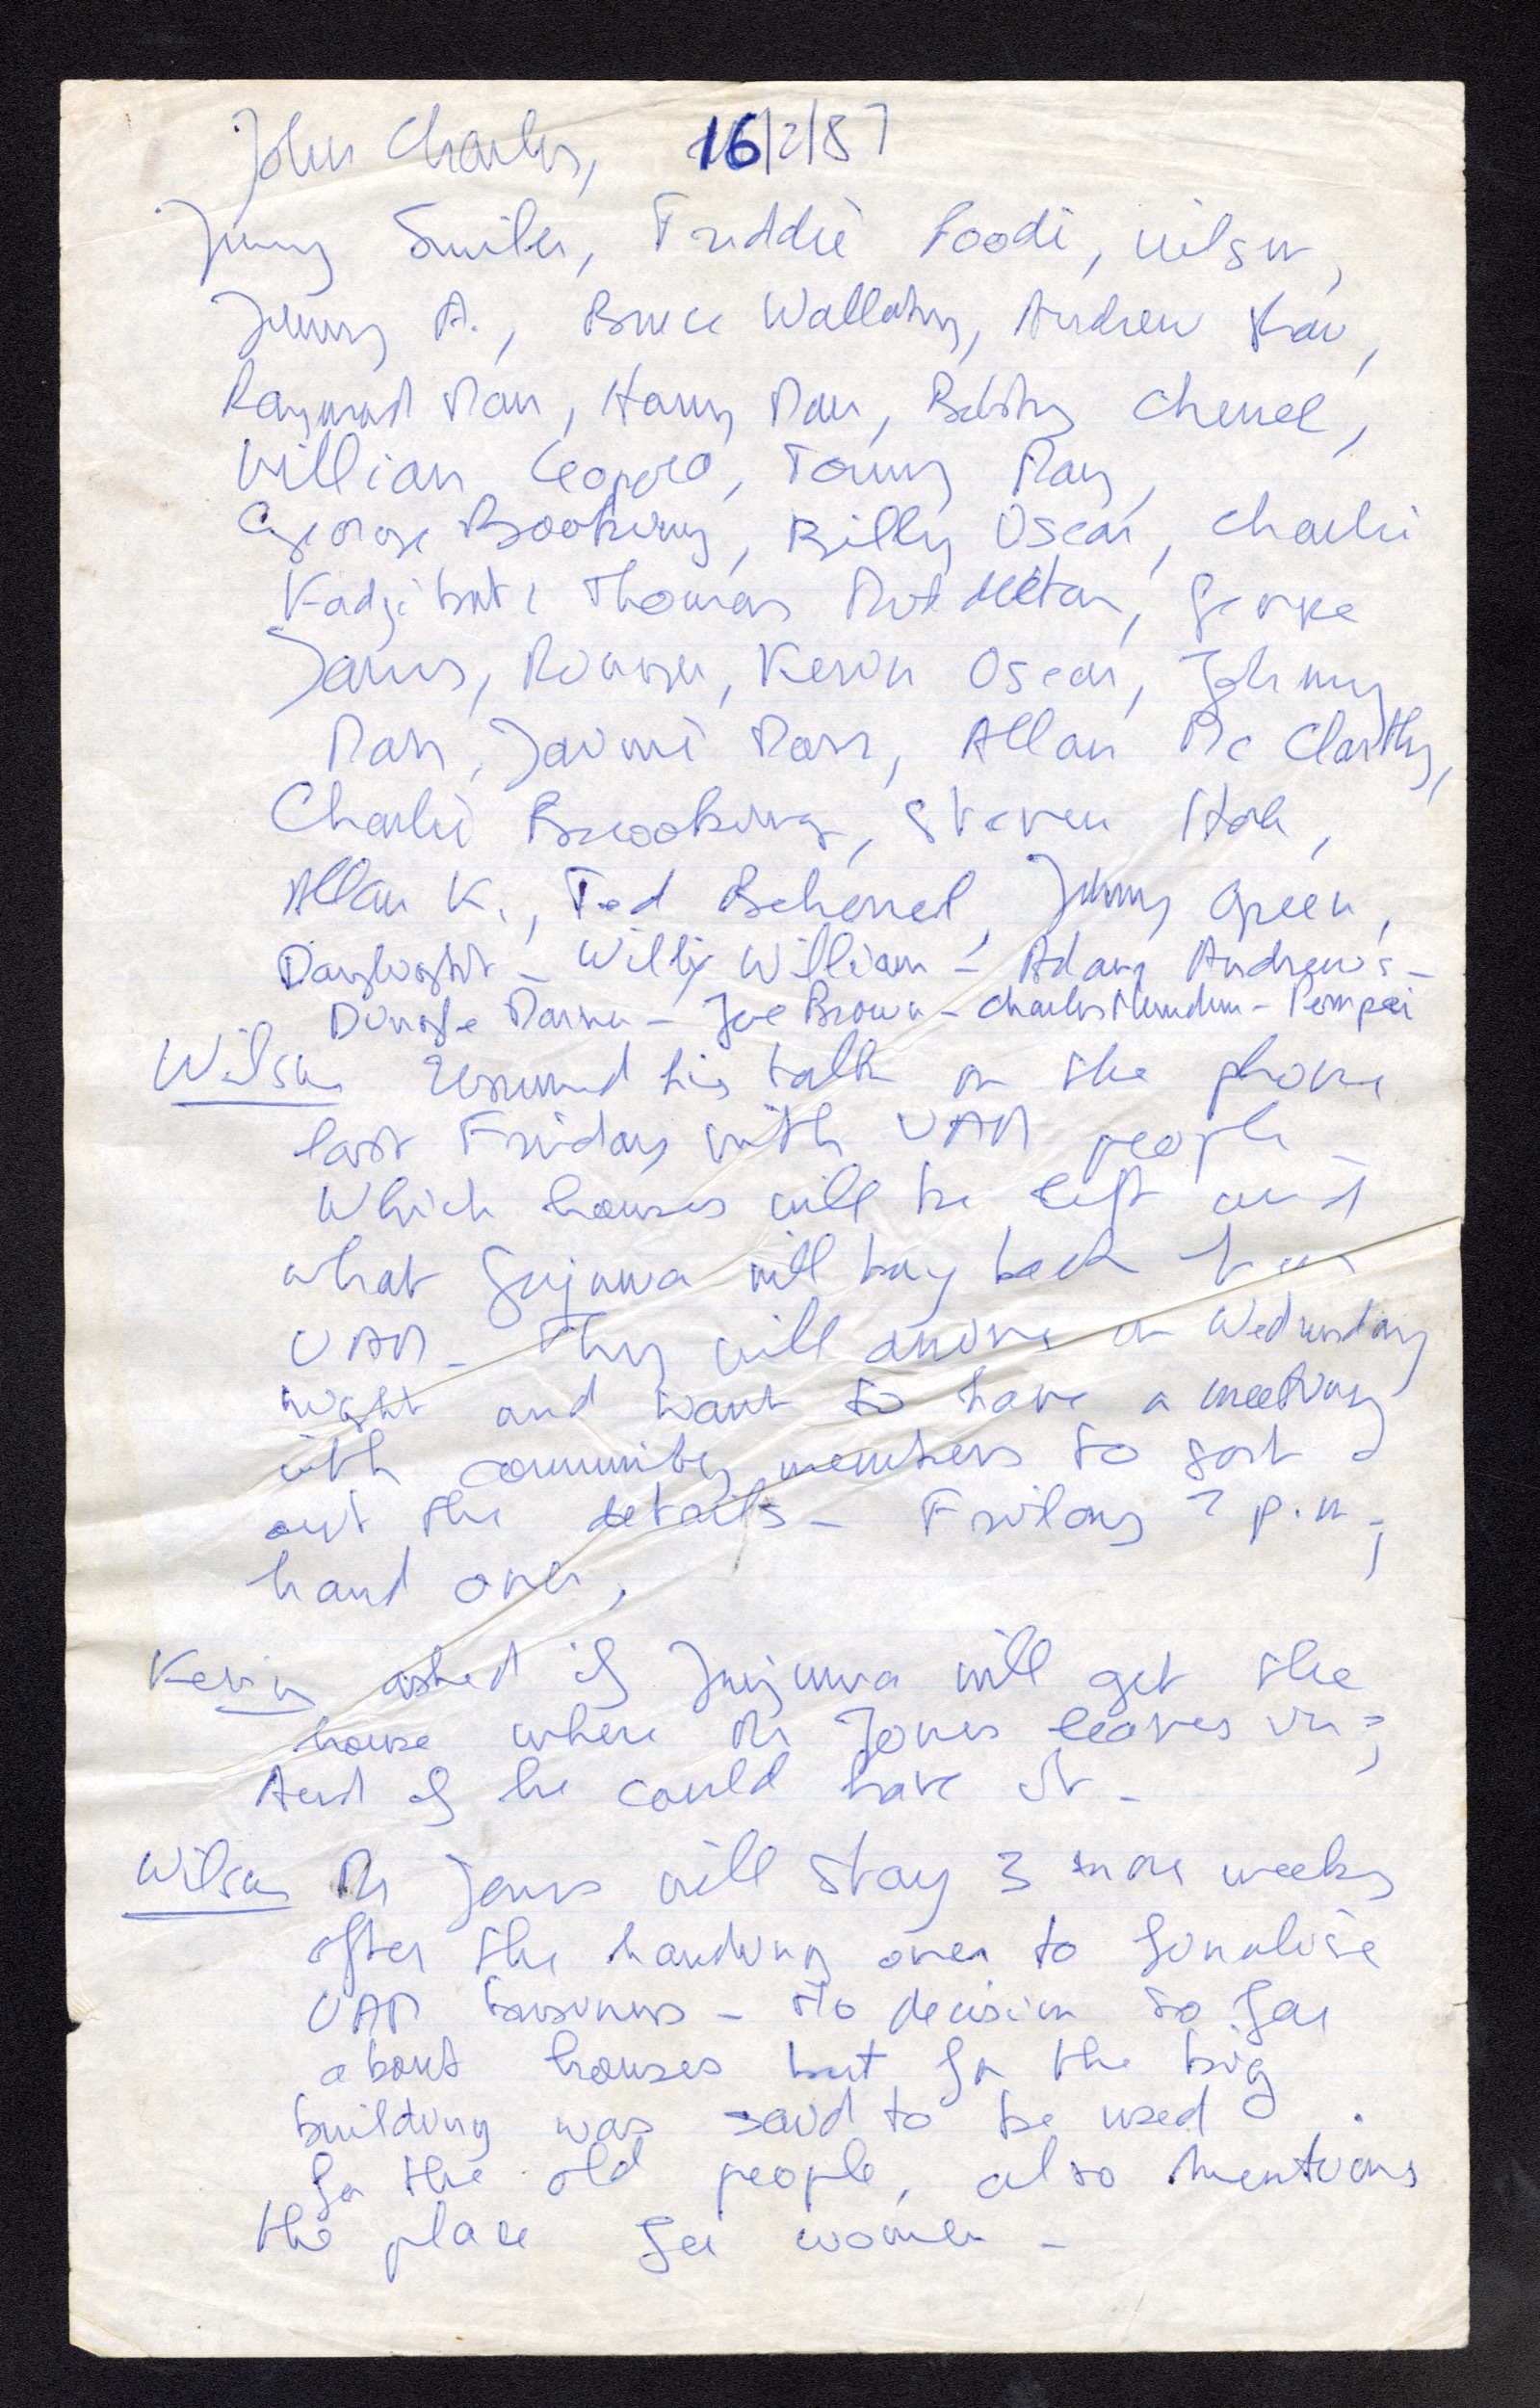 John Charles, 16/2/87
Jimmy Smiler, Freddie Foodi, Wilson,
Jimmy A., Bruce Wallaby, Andrew
Raymond Man, Harry Man, Bobby
William Leopold, Tommy May,
George Brooking, Billy Oscar, Charlie
Thomas George
James, Kevin Oscar, Johnny
Marr, Jaimi Marr, Allan Mc Clarthy,
Charlie Brooking, Steven
Allan K., Ted Beharrel, Jimmy Green,
Daylight - Willy William - Adam Andrews -
Joe Brown - Charles - Pompei
Wilson resumed his talk on the phone
last Friday with UAM people -
Which houses will be left and
what Junjuwa will buy back from
UAM - They will arrive on Wednesday
night and want to have a meeting
with community members to sort
out the details - Friday 2 p.m;
hand over,
Kevin asked if Junjuwa will get the
house where Mr Jones leaves in;
And if he could have it -
Wilson Mr Jones will stay 3 more weeks
after the handing over to finalise
UAM business - No decision so far
about houses but for the big
building was said to be used
for the old people, also mentions
the place for women -